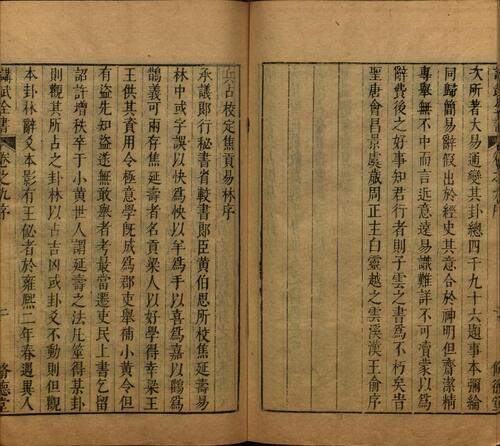 大所著大易通變其卦總四千九十六題事本彌綸
同歸簡易辭假出於經史其意合於神明但齋潔精
專舉無不中而言近意遠易識難詳不可瀆蒙以爲
辭費後之好事知君行者則子雲之書爲不朽矣旹
聖唐會昌景虞歲周正主白靈越之雲溪渼王俞序
兵占校定焦貢易林序
承議郎行秘書省較書郎臣黃伯思所校焦延壽易
林中或字誤以快爲怏以羊爲手以喜爲嘉以鸛爲
鵲義可兩存焦延壽者名貢梁人以好學得幸梁王
王供其資用令極意學旣成爲郡吏舉補小黃令但
有盜先知盜遂無敢舉者考最當遷吏民上書乞留
詔許增秩卒于小黃世人謂延壽之法凡筮得某卦
則觀其所占之卦林以占吉凶或卦爻不動則但觀
本卦林辭爻本影有王佖者於雍熙二年春遇異人
講武全書 卷之九序 二 脩德堂